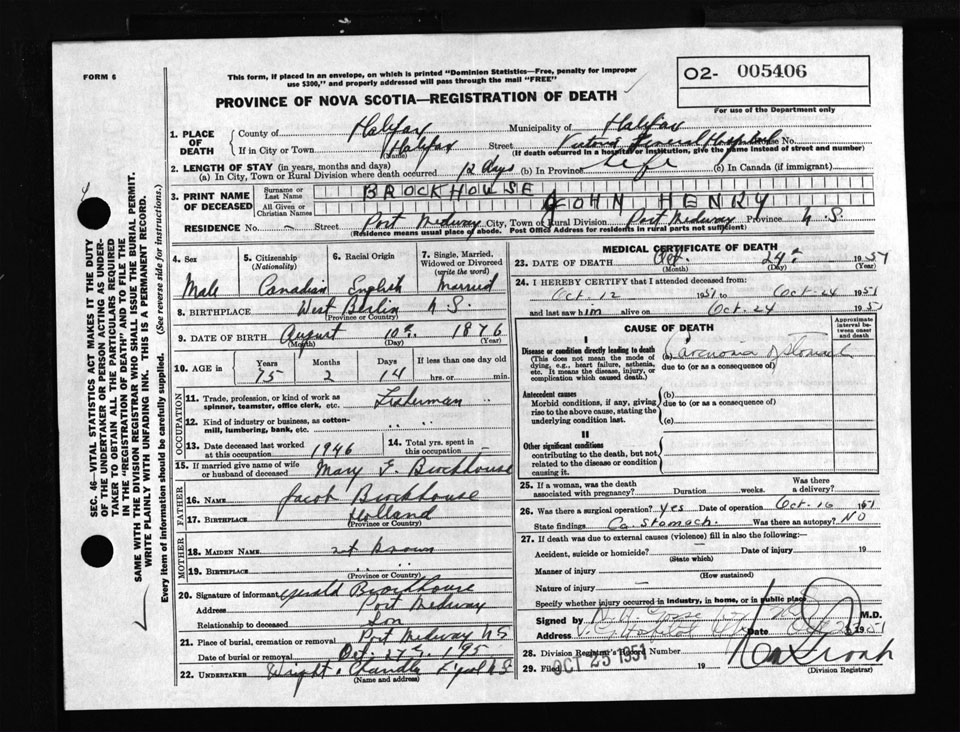 FORM 6
This form, if placed in an envelope, on which is printed "Dominion Statistics—Free, penalty for improper
use $300," and properly addressed will pass through the mail "FREE"
02- 005406
For use of the Department only
PROVINCE OF NOVA SCOTIA—REGISTRATION OF DEATH
SEC. 46—VITAL STATISTICS ACT MAKES IT THE DUTY
OF THE UNDERTAKER OR PERSON ACTING AS UNDER-
TAKER TO OBTAIN ALL THE PARTICULARS REQUIRED
IN THE "REGISTRATION OF DEATH" AND TO FILE THE
SAME WITH THE DIVISION REGISTRAR WHO SHALL ISSUE THE BURIAL PERMIT.
WRITE PLAINLY WITH UNFADING INK. THIS IS A PERMANENT RECORD.
Every item of information should be carefully supplied. (See reverse side for instructions.)
1. PLACE OF DEATH
County of Halifax Municipality of Halifax
If in City or Town Halifax Street Victoria General Hospital House No.
(Name) (If death occurred in a hospital or institution, give the name instead of street and number)
2. LENGTH OF STAY (in years, months and days)
(a) In City, Town or Rural Division where death occurred 12 days (b) In Province Life (c) In Canada (if immigrant)
3. PRINT NAME OF DECEASED
Surname or Last Name BROCKHOUSE
All Given or Christian Names JOHN HENRY
RESIDENCE No. - Street Port Medway City, Town or Rural Division Port Medway Province N.S.
(Residence means usual place of abode. Post Office Address for residents in rural parts not sufficient)
4. Sex
Male
5. Citizenship (Nationality)
Canadian
6. Racial Origin
English
7. Single, Married, Widowed or Divorced (write the word)
Married
8. BIRTHPLACE West Berlin N.S.
(Province or Country)
9. DATE OF BIRTH August 10th 1876
(Month) (Day) (Year)
10. AGE in
Years 75
Months 2
Days 14
If less than one day old
hrs. or min.
OCCUPATION
11. Trade, profession, or kind of work as spinner, teamster, office clerk, etc. Fisherman
12. Kind of industry or business, as cotton-mill, lumbering, bank, etc.
13. Date deceased last worked at this occupation 1946
14. Total yrs. spent in this occupation -
15. If married give name of wife or husband of deceased Mary F. Brockhouse
FATHER
16. NAME Jacob Brockhouse
17. BIRTHPLACE Holland
(Province or Country)
MOTHER
18. MAIDEN NAME not known
19. BIRTHPLACE
(Province or Country)
20. Signature of informant Gerald Brockhouse
Address Port Medway
Relationship to deceased Son
21. Place of burial, cremation or removal Port Medway NS
Date of burial or removal Oct. 27th 195
22. UNDERTAKER Wright Chandler L'pool N.S.
(Name and address)
MEDICAL CERTIFICATE OF DEATH
23. DATE OF DEATH Oct. 24th 1951
(Month) (Day) (Year)
24. I HEREBY CERTIFY that I attended deceased from:
Oct. 12 1951 to Oct-24 1951
and last saw him alive on Oct-24 1951
CAUSE OF DEATH
Approximate interval between onset and death
I
Disease or condition directly leading to death
(This does not mean the mode of dying, e.g., heart failure, asthenia, etc. It means the disease, injury, or complication which caused death.)
(a) Carcinoma of Stomach
due to (or as a consequence of)
Antecedent causes
Morbid conditions, if any, giving rise to the above cause, stating the underlying condition last.
(b)
due to (or as a consequence of)
(c)
II
Other significant conditions
contributing to the death, but not related to the disease or condition causing it.
25. If a woman, was the death associated with pregnancy? Duration weeks. Was there a delivery?
26. Was there a surgical operation? yes Date of operation Oct-16 1951
State findings Ca. Stomach. Was there an autopsy? NO
27. If death was due to external causes (violence) fill in also the following:—
Accident, suicide or homicide? Date of injury 19
(State which)
Manner of injury
(How sustained)
Nature of injury -
Specify whether injury occurred in industry, in home, or in public place
Signed by M.D.
Address V.G. Hospital Date 1951
28. Division Registrar's Record Number
29. Filed OCT 25 1951 19
(Division Registrar)